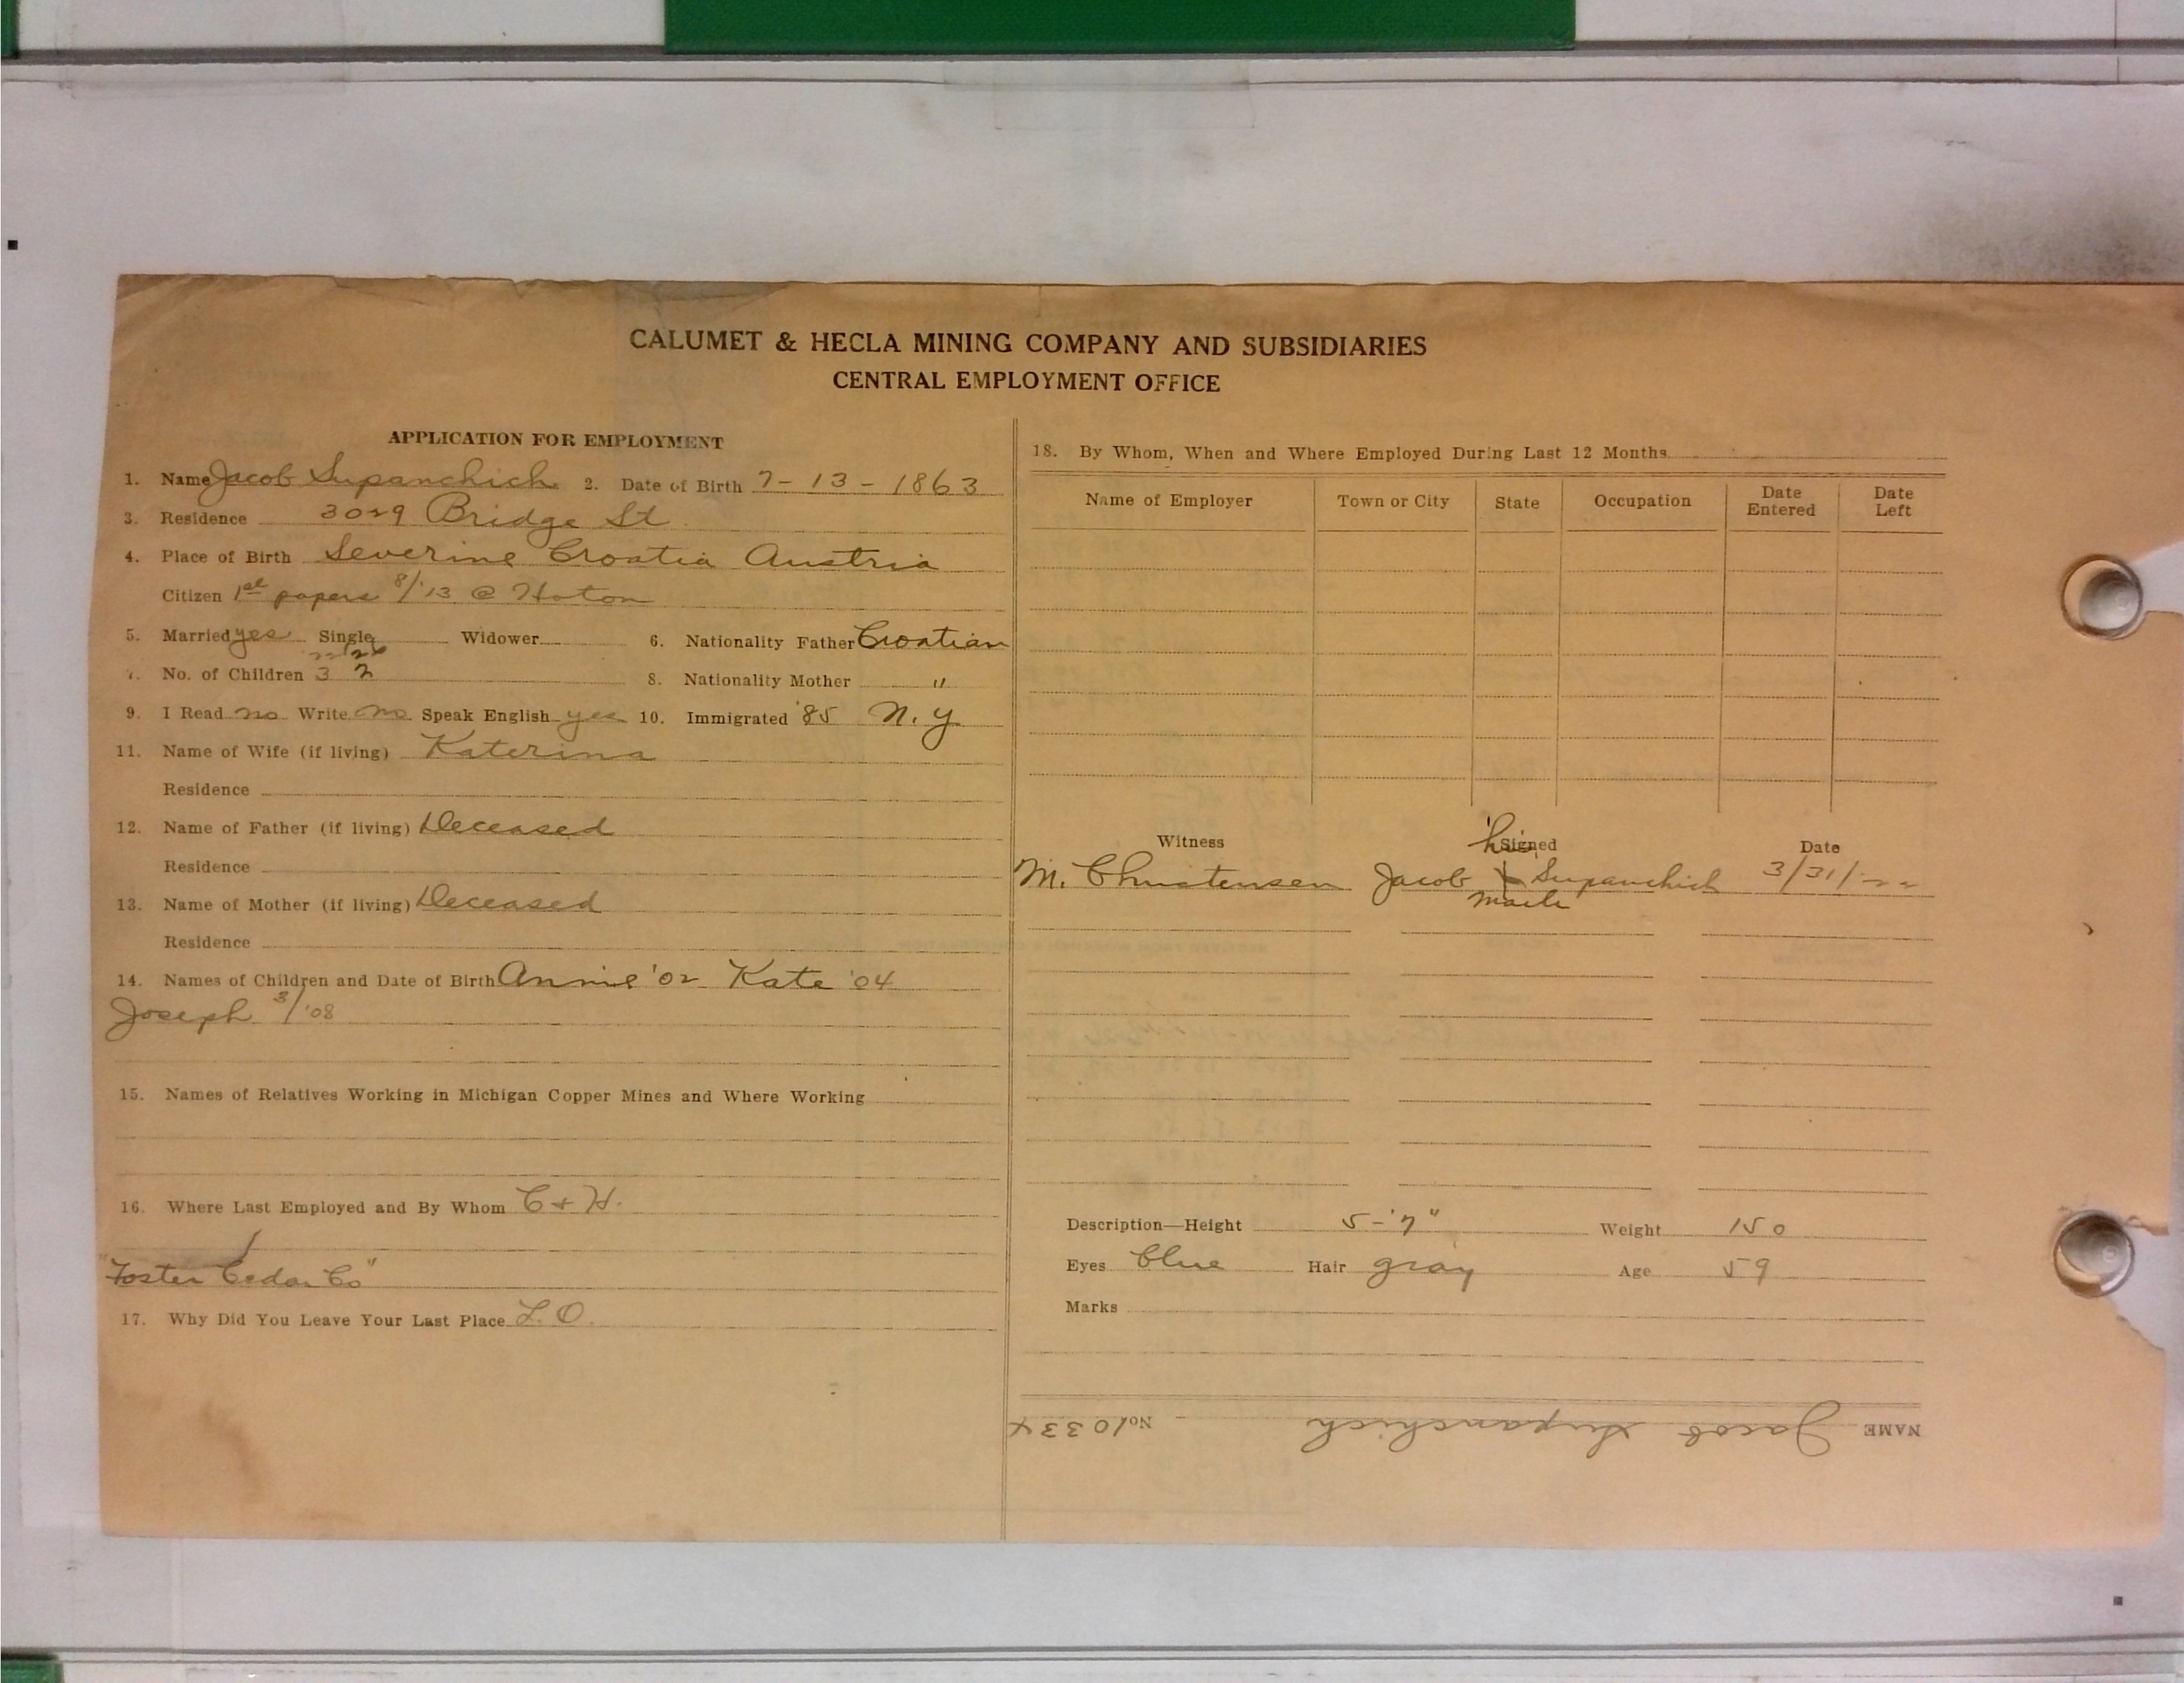 CALUMET & HECLA MINING COMPANY AND SUBSIDIARIES
CENTRAL EMPLOYMENT OFFICE
APPLICATION FOR EMPLOYMENT
1. Name Jacob Supanchich 2. Date of Birth 7-13-1863
3. Residence 3029 Bridge St
4. Place of Birth Severine Croatia Austria
Citizen 1st papers 8/'13 @ Hoton
5. Married yes Single Widower 6. Nationality Father Croatian
7. No. of Children 3 2 8. Nationality Mother "
9. I Read no Write no Speak English yes 10. Immigrated '85 N.Y
11. Name of Wife (if living) Katerina
Residence
12. Name of Father (if living) Deceased
Residence
13. Name of Mother (if living) Deceased
Residence
14. Names of Children and Date of Birth Annie '02 Kate '04
Joseph 3/'08
15. Names of Relatives Working in Michigan Copper Mines and Where Working
16. Where Last Employed and By Whom C + H.
"Foster Cedar Co"
17. Why Did You Leave Your Last Place L. O.
18. By Whom, When and Where Employed During Last 12 Months
Name of Employer Town or City State Occupation Date Entered Date Left
Witness his Signed Date
M. Christensen Jacob X Supanchich 3/31/22
mark
Description—Height 5-'7" Weight 150
Eyes blue Hair gray Age 59
Marks
NAME Jacob Supanchich No. 10334